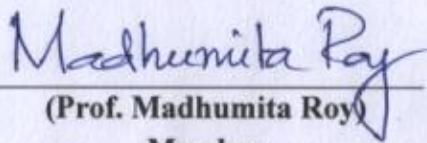 Madhumita Roy
(Prof. Madhumita Roy)